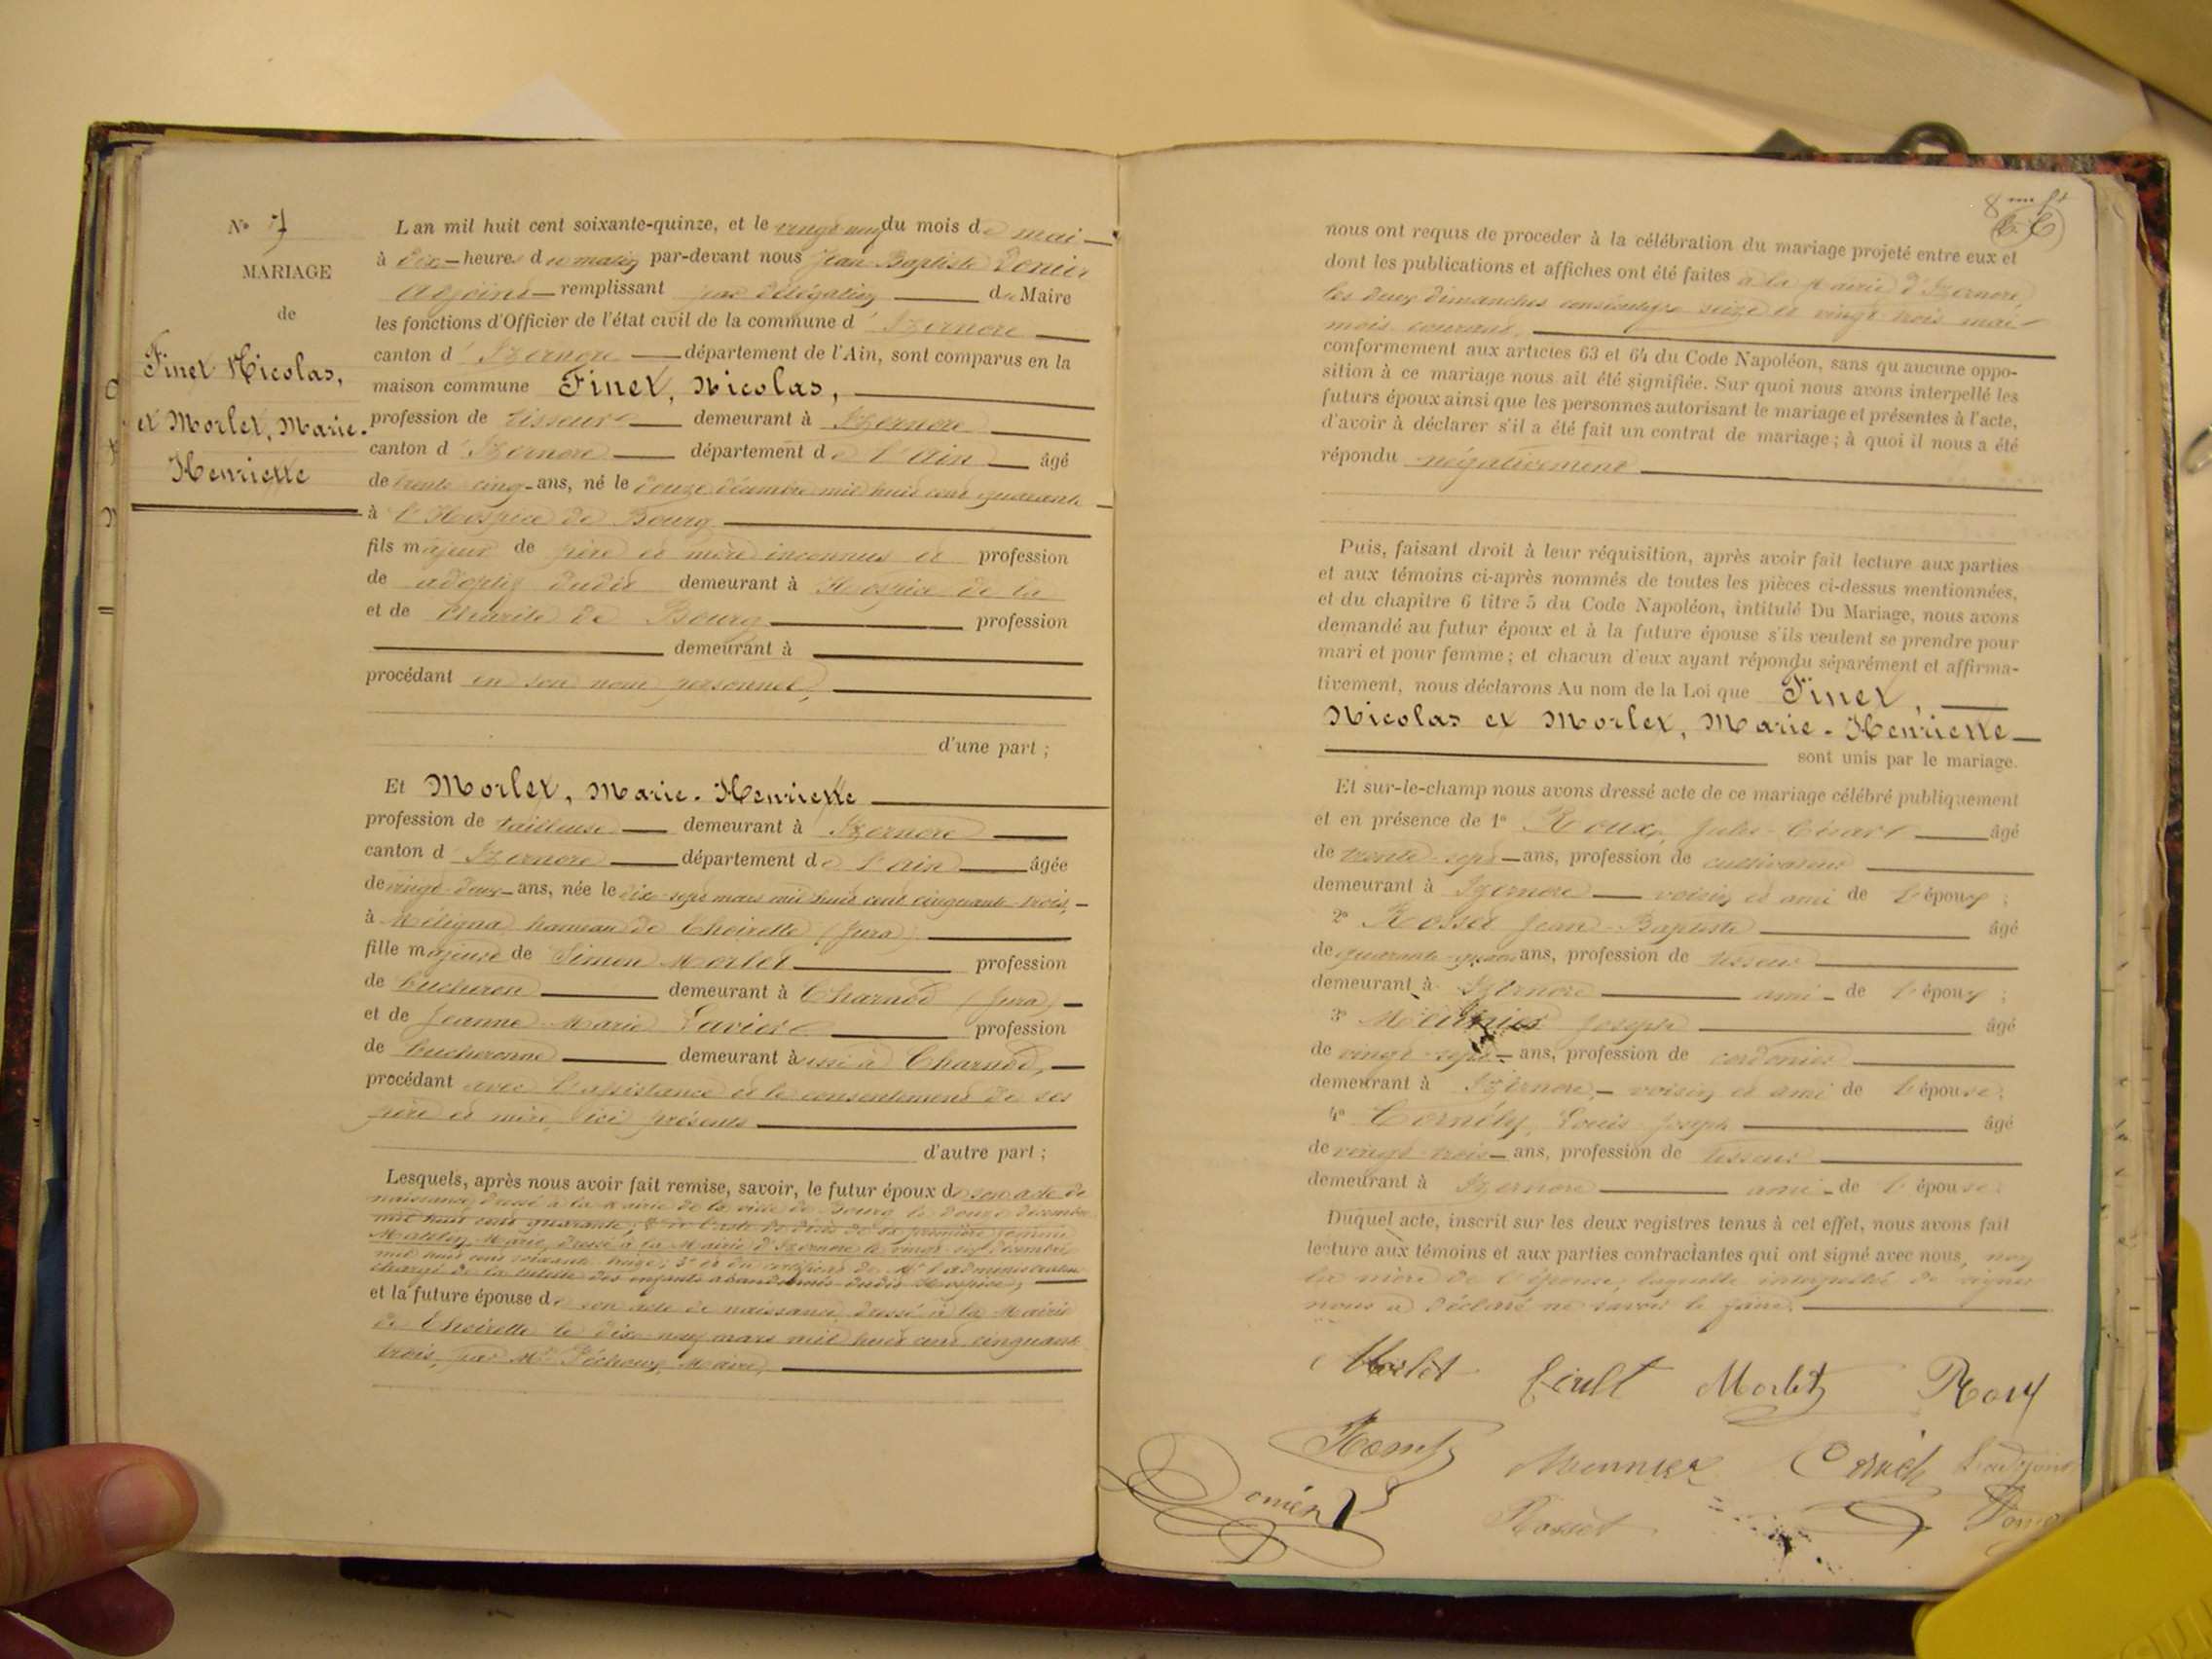 N° 7
MARIAGE
de
Finet Nicolas,
et Morlet, Marie-
Henriette
L'an mil huit cent soixante-quinze, et le vingt neuf du mois de mai
à dix heures du matin par-devant nous Jean Baptiste Donier
adjoint remplissant par délégation du Maire
les fonctions d'Officier de l'état civil de la commune d'Izernore
canton d'Izernore département de l'Ain, sont comparus en la
maison commune Finet, Nicolas,
profession de tisseur demeurant à Izernore
canton d'Izernore département de l'Ain âgé
de trente cinq ans, né le douze décembre mil huit cent quarante
à l'Hospice de Bourg
fils majeur de père et mère inconnus et profession
de adoptif dudit demeurant à Hospice de la
et de Charité de Bourg profession
demeurant à
procédant en son nom personnel,
d'une part ;
Et Morlet, Marie-Henriette
profession de tailleuse demeurant à Izernore
canton d'Izernore département de l'Ain âgée
de vingt-deux ans, née le dix-sept mars mil huit cent cinquante trois,
à Méligna hameau de Thoirette (Jura)
fille majeure de Simon Morlet profession
de bucheron demeurant à Charnod (Jura)
et de Jeanne-Marie profession
de bucheronne demeurant aussi à Charnod,
procédant avec l'assistance et le consentement de ses
père et mère, ici présents
d'autre part ;
Lesquels, après nous avoir fait remise, savoir, le futur époux de son acte de
naissance, dressé à la Mairie de la ville de Bourg le douze décembre
mil huit cent quarante ; 2° de l'acte de décès de sa première femme
Marie, dressé à la Mairie d'Izernore le vingt décembre
mil huit cent soixante treize ; 3° et du certificat de Mr l'administrateur
chargé de la tutelle des enfants abandonnés dudit Hospice,
et la future épouse de son acte de naissance dressé à la Mairie
de Thoirette le dix neuf mars mil huit cent cinquante
trois, par Mr Maire,
8me ft
nous ont requis de procéder à la célébration du mariage projeté entre eux et
dont les publications et affiches ont été faites à la Mairie d'Izernore,
les deux dimanches consécutifs seize et vingt trois mai
mois courant,
conformement aux articles 63 et 64 du Code Napoléon, sans qu'aucune oppo-
sition à ce mariage nous ait été signifiée. Sur quoi nous avons interpellé les
futurs époux ainsi que les personnes autorisant le mariage et présentes à l'acte,
d'avoir à déclarer s'il a été fait un contrat de mariage ; à quoi il nous a été
répondu négativement
Puis, faisant droit à leur réquisition, après avoir fait lecture aux parties
et aux témoins ci-après nommés de toutes les pièces ci-dessus mentionnées,
et du chapitre 6 titre 5 du Code Napoléon, intitulé Du Mariage, nous avons
demandé au futur époux et à la future épouse s'ils veulent se prendre pour
mari et pour femme ; et chacun d'eux ayant répondu séparément et affirma-
tivement, nous déclarons Au nom de la Loi que Finet,
Nicolas et Morlet, Marie-Henriette
sont unis par le mariage.
Et sur-le-champ nous avons dressé acte de ce mariage célébré publiquement
et en présence de 1° Roux, Jules âgé
de trente-sept ans, profession de cultivateur
demeurant à Izernore voisin et ami de l'époux ;
2° Rosset Jean-Baptiste âgé
de quarante ans, profession de tisseur
demeurant à Izernore ami de l'époux ;
3° Meunier Joseph âgé
de vingt-sept ans, profession de cordonier
demeurant à Izernore, voisin et ami de l'épouse ;
4° Cornély, Louis-Joseph âgé
de vingt-trois ans, profession de tisseur
demeurant à Izernore ami de l'épouse.
Duquel acte, inscrit sur les deux registres tenus à cet effet, nous avons fait
lecture aux témoins et aux parties contractantes qui ont signé avec nous, non
la mère de l'épouse, laquelle interpellée de signer
nous a déclaré ne savoir le faire.
Morlet Morlet Roux
Meunier L'adjoint
Donier Rosset Donier